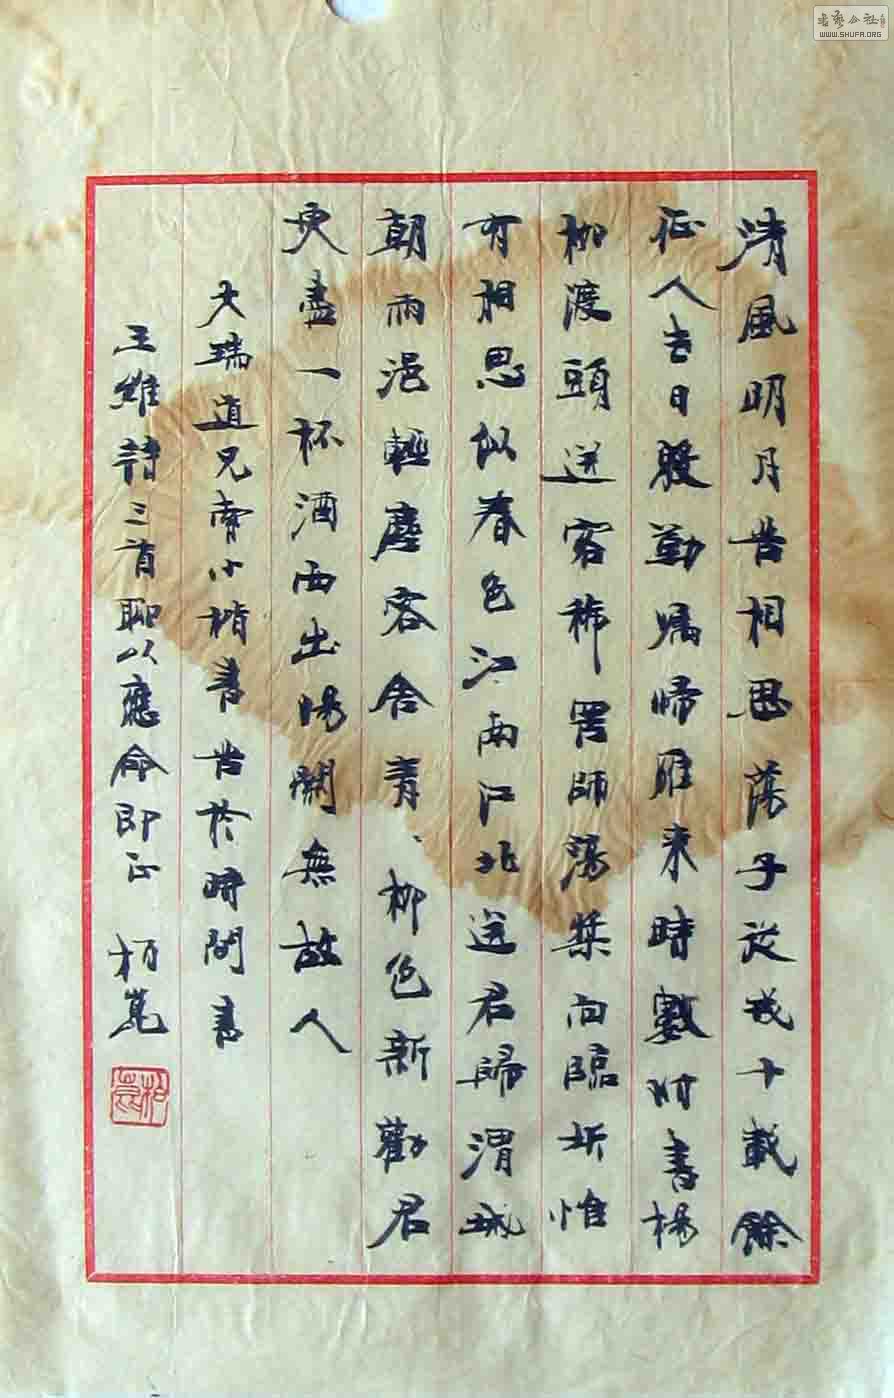 清風明月苦相思蕩子從戎十載餘
征人去日殷勤囑帰雁来時數附書楊
柳渡頭送客稀罟師蕩槳向臨圻惟
有相思似春色江南江北送君歸渭城
朝雨浥輕塵客舍青、柳色新勸君
更盡一杯酒西出陽關無故人
大瑞道兄索小楷書苦於時間書
王維詩三首聊以應命即正 柏
書藝公社
WWW.SHUFA.ORG